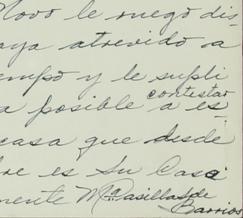 Novo le ruego dis
aya atrevido a
empo y le supli
a posible contestar a es
casa que desde
re es su Casa
mente Mª Casillas de
Barrios